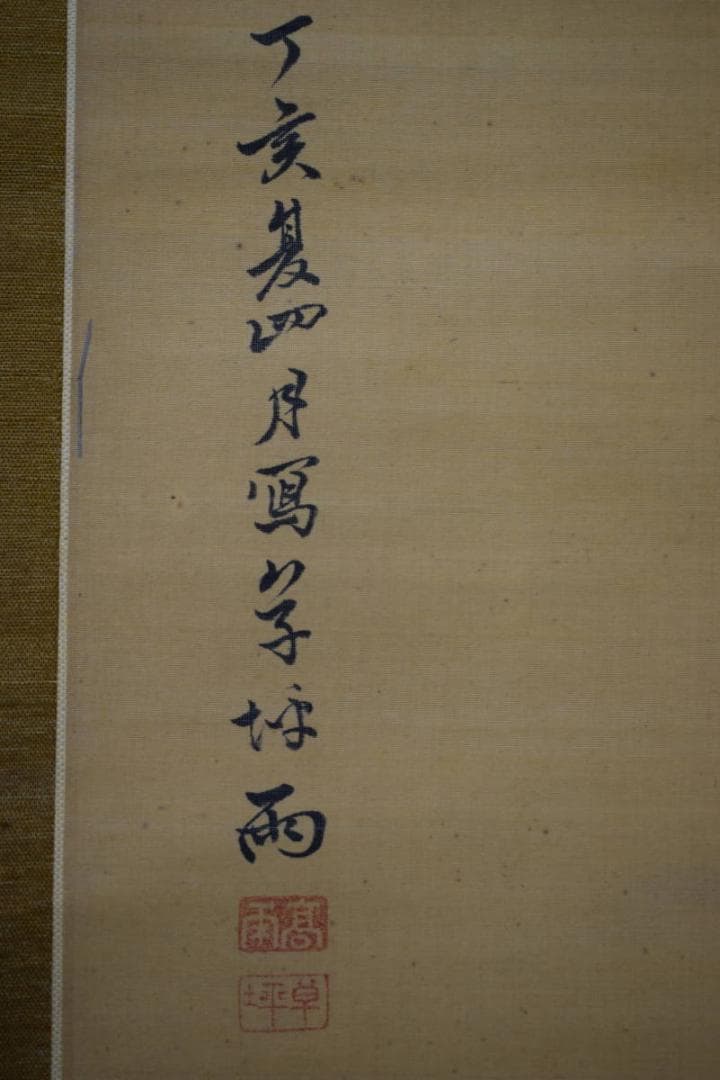 丁亥夏四月寫草坪雨
高雨
草坪